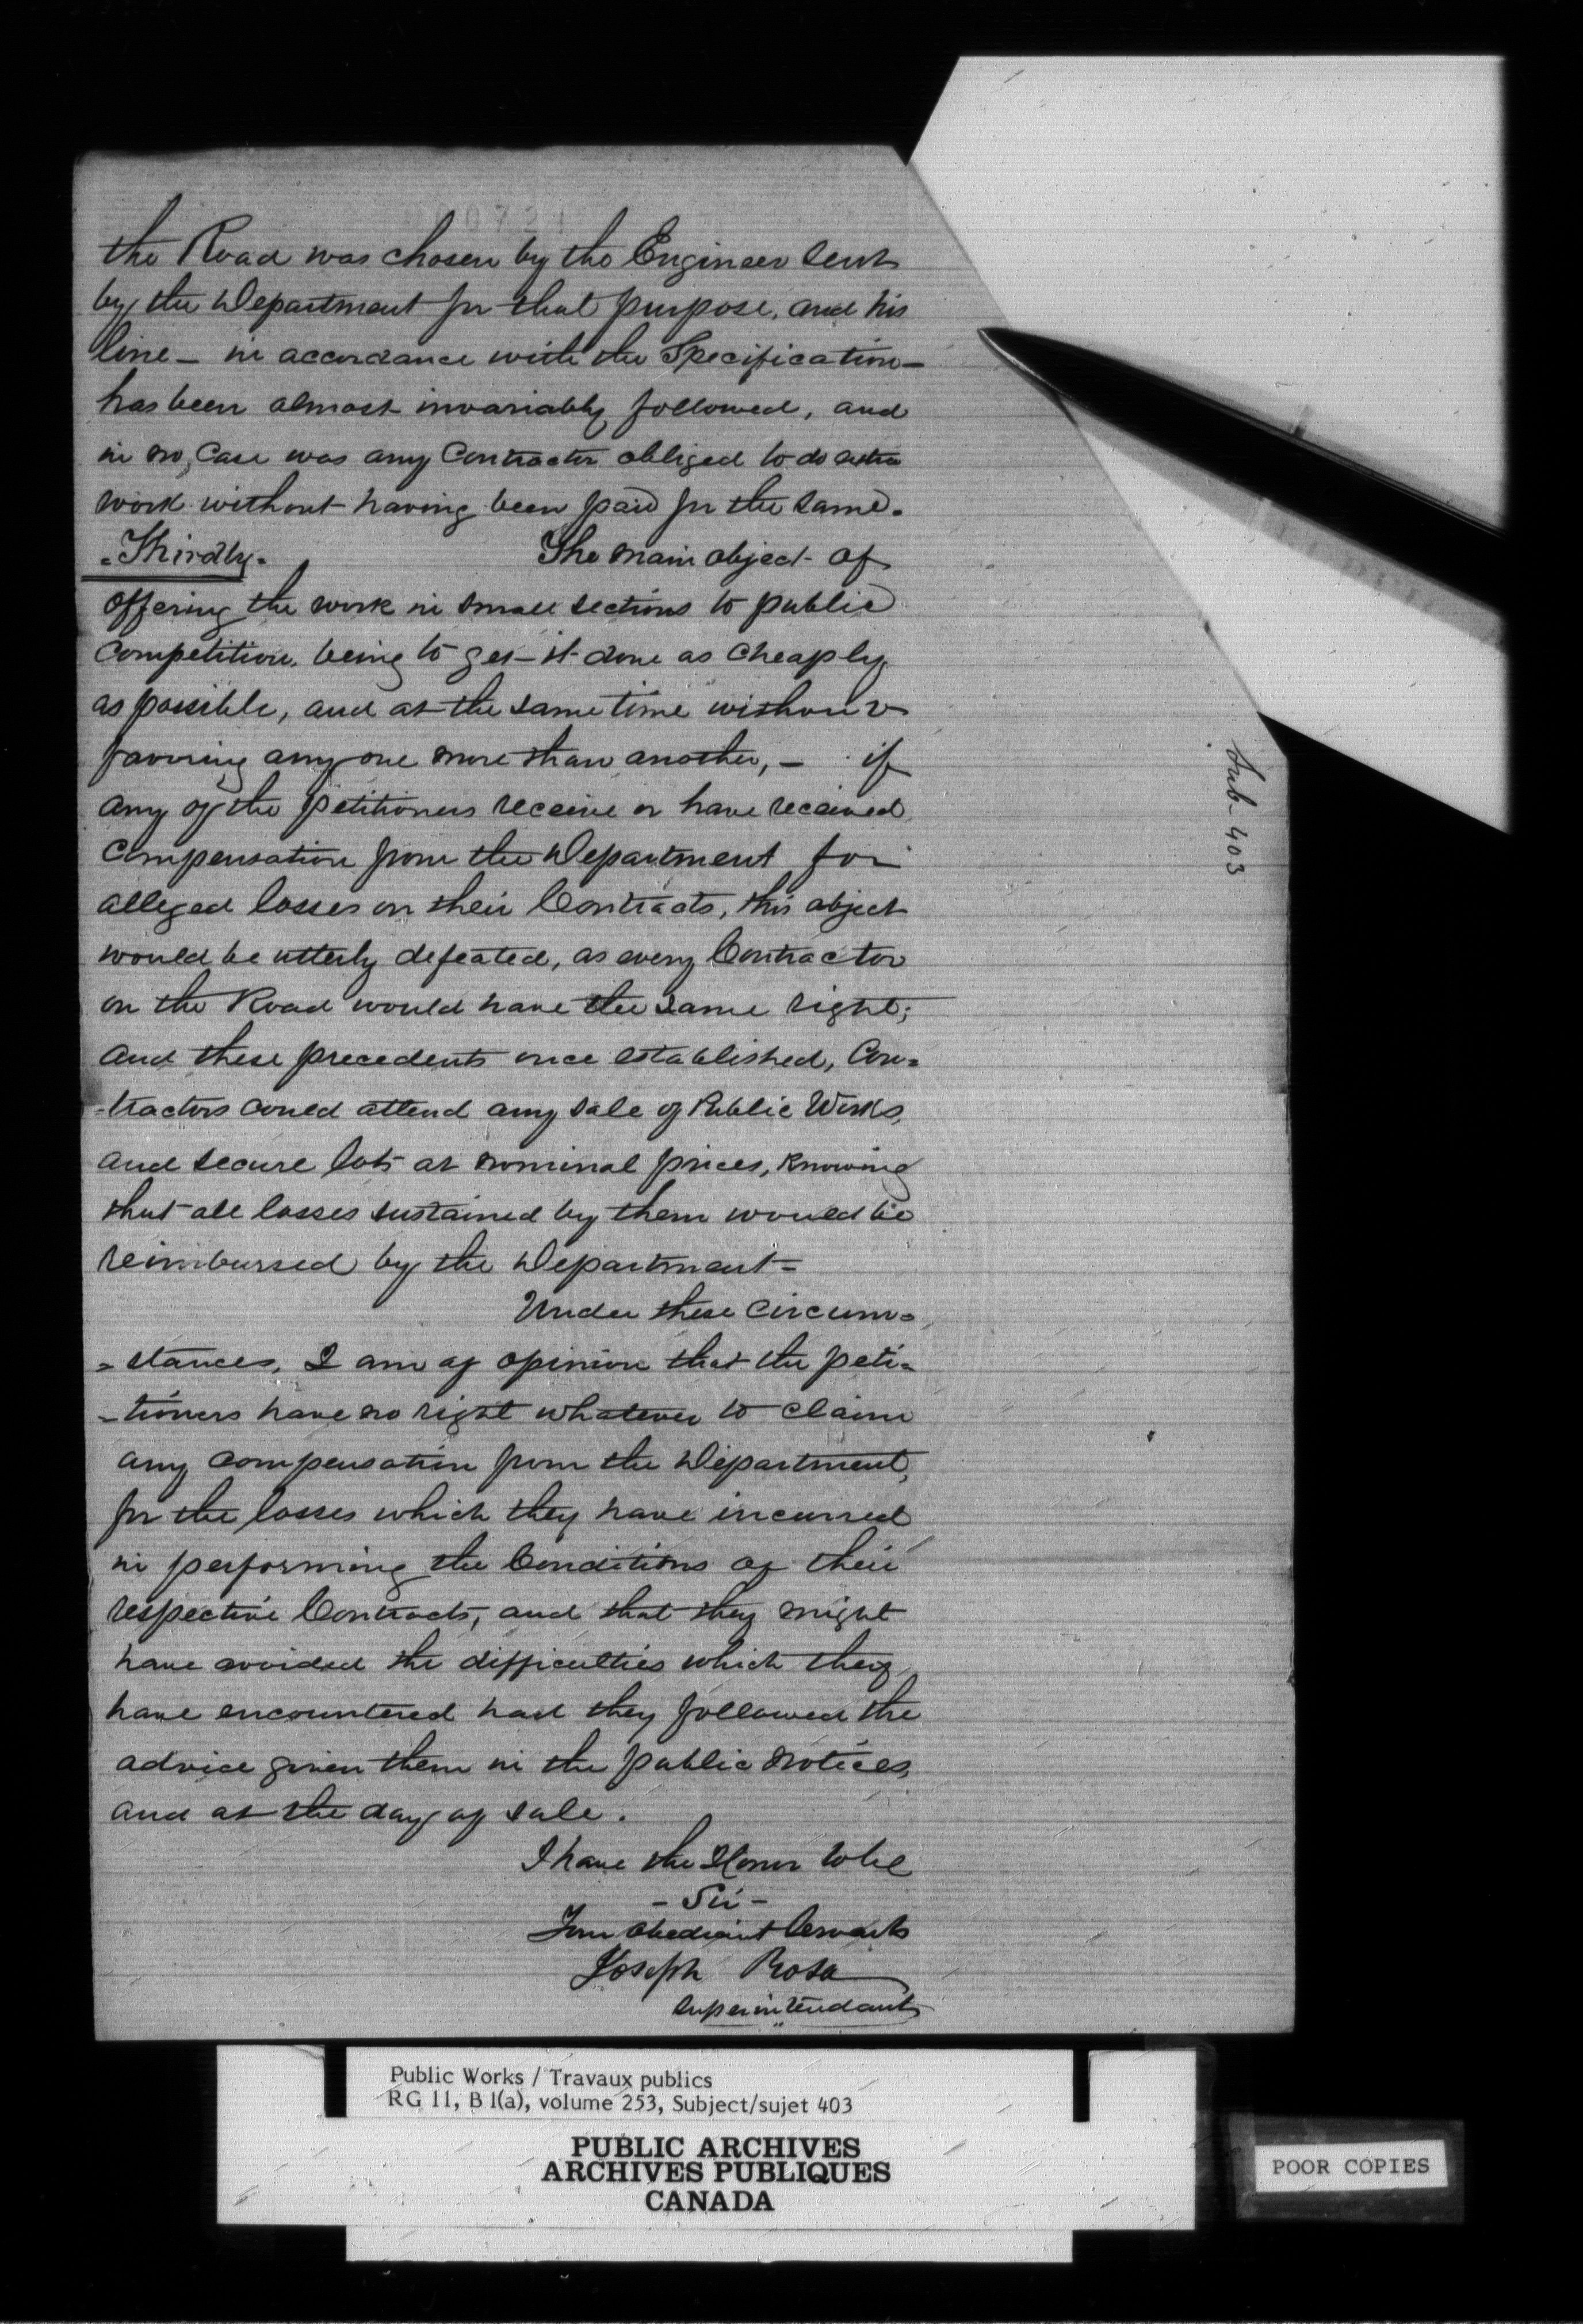 the Road was chosen by the Engineer sent
by the Department for that purpose, and his
line - in accordance with the Specification -
has been almost invariably followed, and
in no case was any Contractor obliged to do extra
work without having been paid for the same.
Thirdly. The main object of
offering the work in small sections to public
Competition, being to get it done as cheaply
as possible, and at the same time without
favoring any one more than another, - if
any of the petitioners receive or have received
compensation from the Department for
alleged losses on their Contracts, this object
would be utterly defeated, as every Contractor
on the Road would have the same right;
and these precedents once established, Con=
-tractors could attend any sale of Public Works,
and secure lots at nominal prices, knowing
that all losses sustained by them would be
reimbursed by the Department -
Under these circum=
=stances, I am of opinion that the peti=
-tioners have no right whatever to claim
any compensation from the Department,
for the losses which they have incurred
in performing the Conditions of their
respective Contracts, and that they might
have avoided the difficulties which they
have encountered had they followed the
advice given them in the public notices,
and at the day of sale.
I have the Honor to be
- Sir -
Your obedient Servant
Joseph Rosa
Superintendant
Sub-403
Public Works / Travaux publics
RG 11, B 1(a), volume 253, Subject/sujet 403
PUBLIC ARCHIVES
ARCHIVES PUBLIQUES
CANADA
POOR COPIES